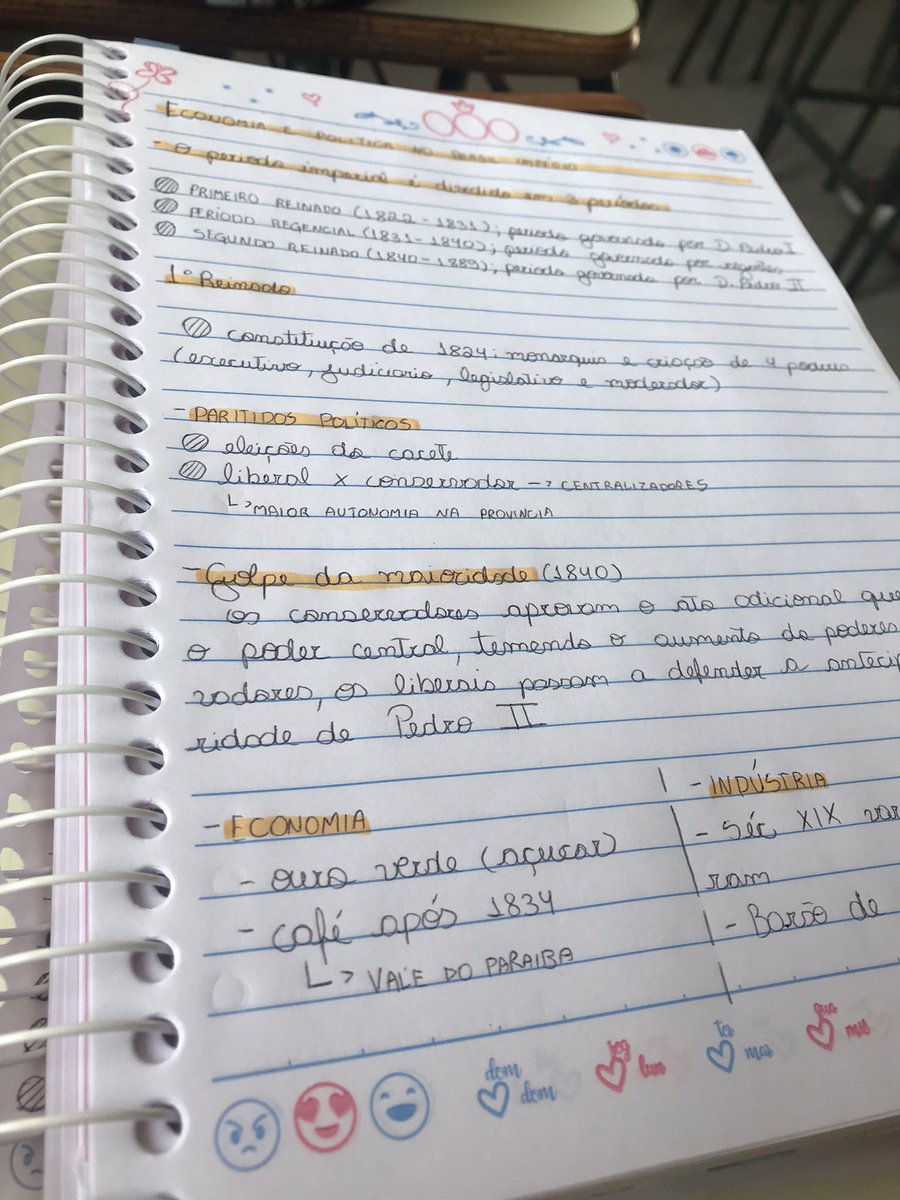 ECONOMIA E POLÍTICA NO BRASIL IMPÉRIO
- O período imperial é dividido em 3 períodos
PRIMEIRO REINADO (1822 - 1831); período governado por D. Pedro I
PERÍODO REGENCIAL (1831 - 1840); período governado por regentes
SEGUNDO REINADO (1840 - 1889); período governado por D. Pedro II
1º Reinado
constituição de 1824: monarquia e criação de 4 poderes
(executivo, judiciario, legislativo e moderador)
- PARITIDOS POLÍTICOS
eleições do cacete
liberal x conservador -> CENTRALIZADORES
L> MAIOR AUTONOMIA NA PROVINCIA
- Golpe da maioridade (1840)
os conservadores aprovam o ato adicional que
o poder central, temendo o aumento do poderes
vadores, os liberais passam a defender a antecip
ridade de Pedro II
- ECONOMIA
- ouro verde (açucar)
- café após 1834
L> VALE DO PARAIBA
- INDÚSTRIA
- Séc XIX var
ram
- Barão de
dom dom
seg lun
ter mar
qua mie